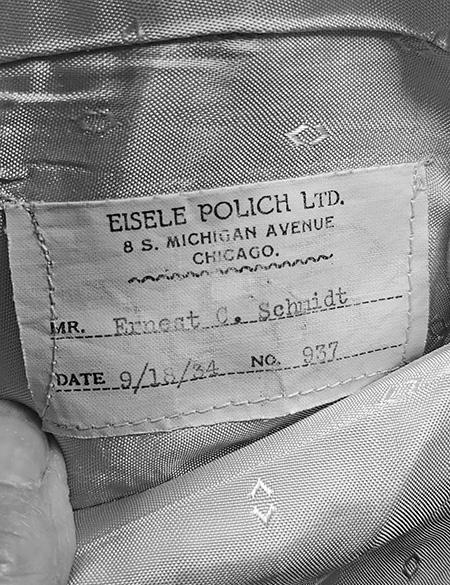 EISELE POLICH LTD.
8 S. MICHIGAN AVENUE
CHICAGO.
MR. Ernest C. Schmidt
DATE 9/18/34 NO. 937